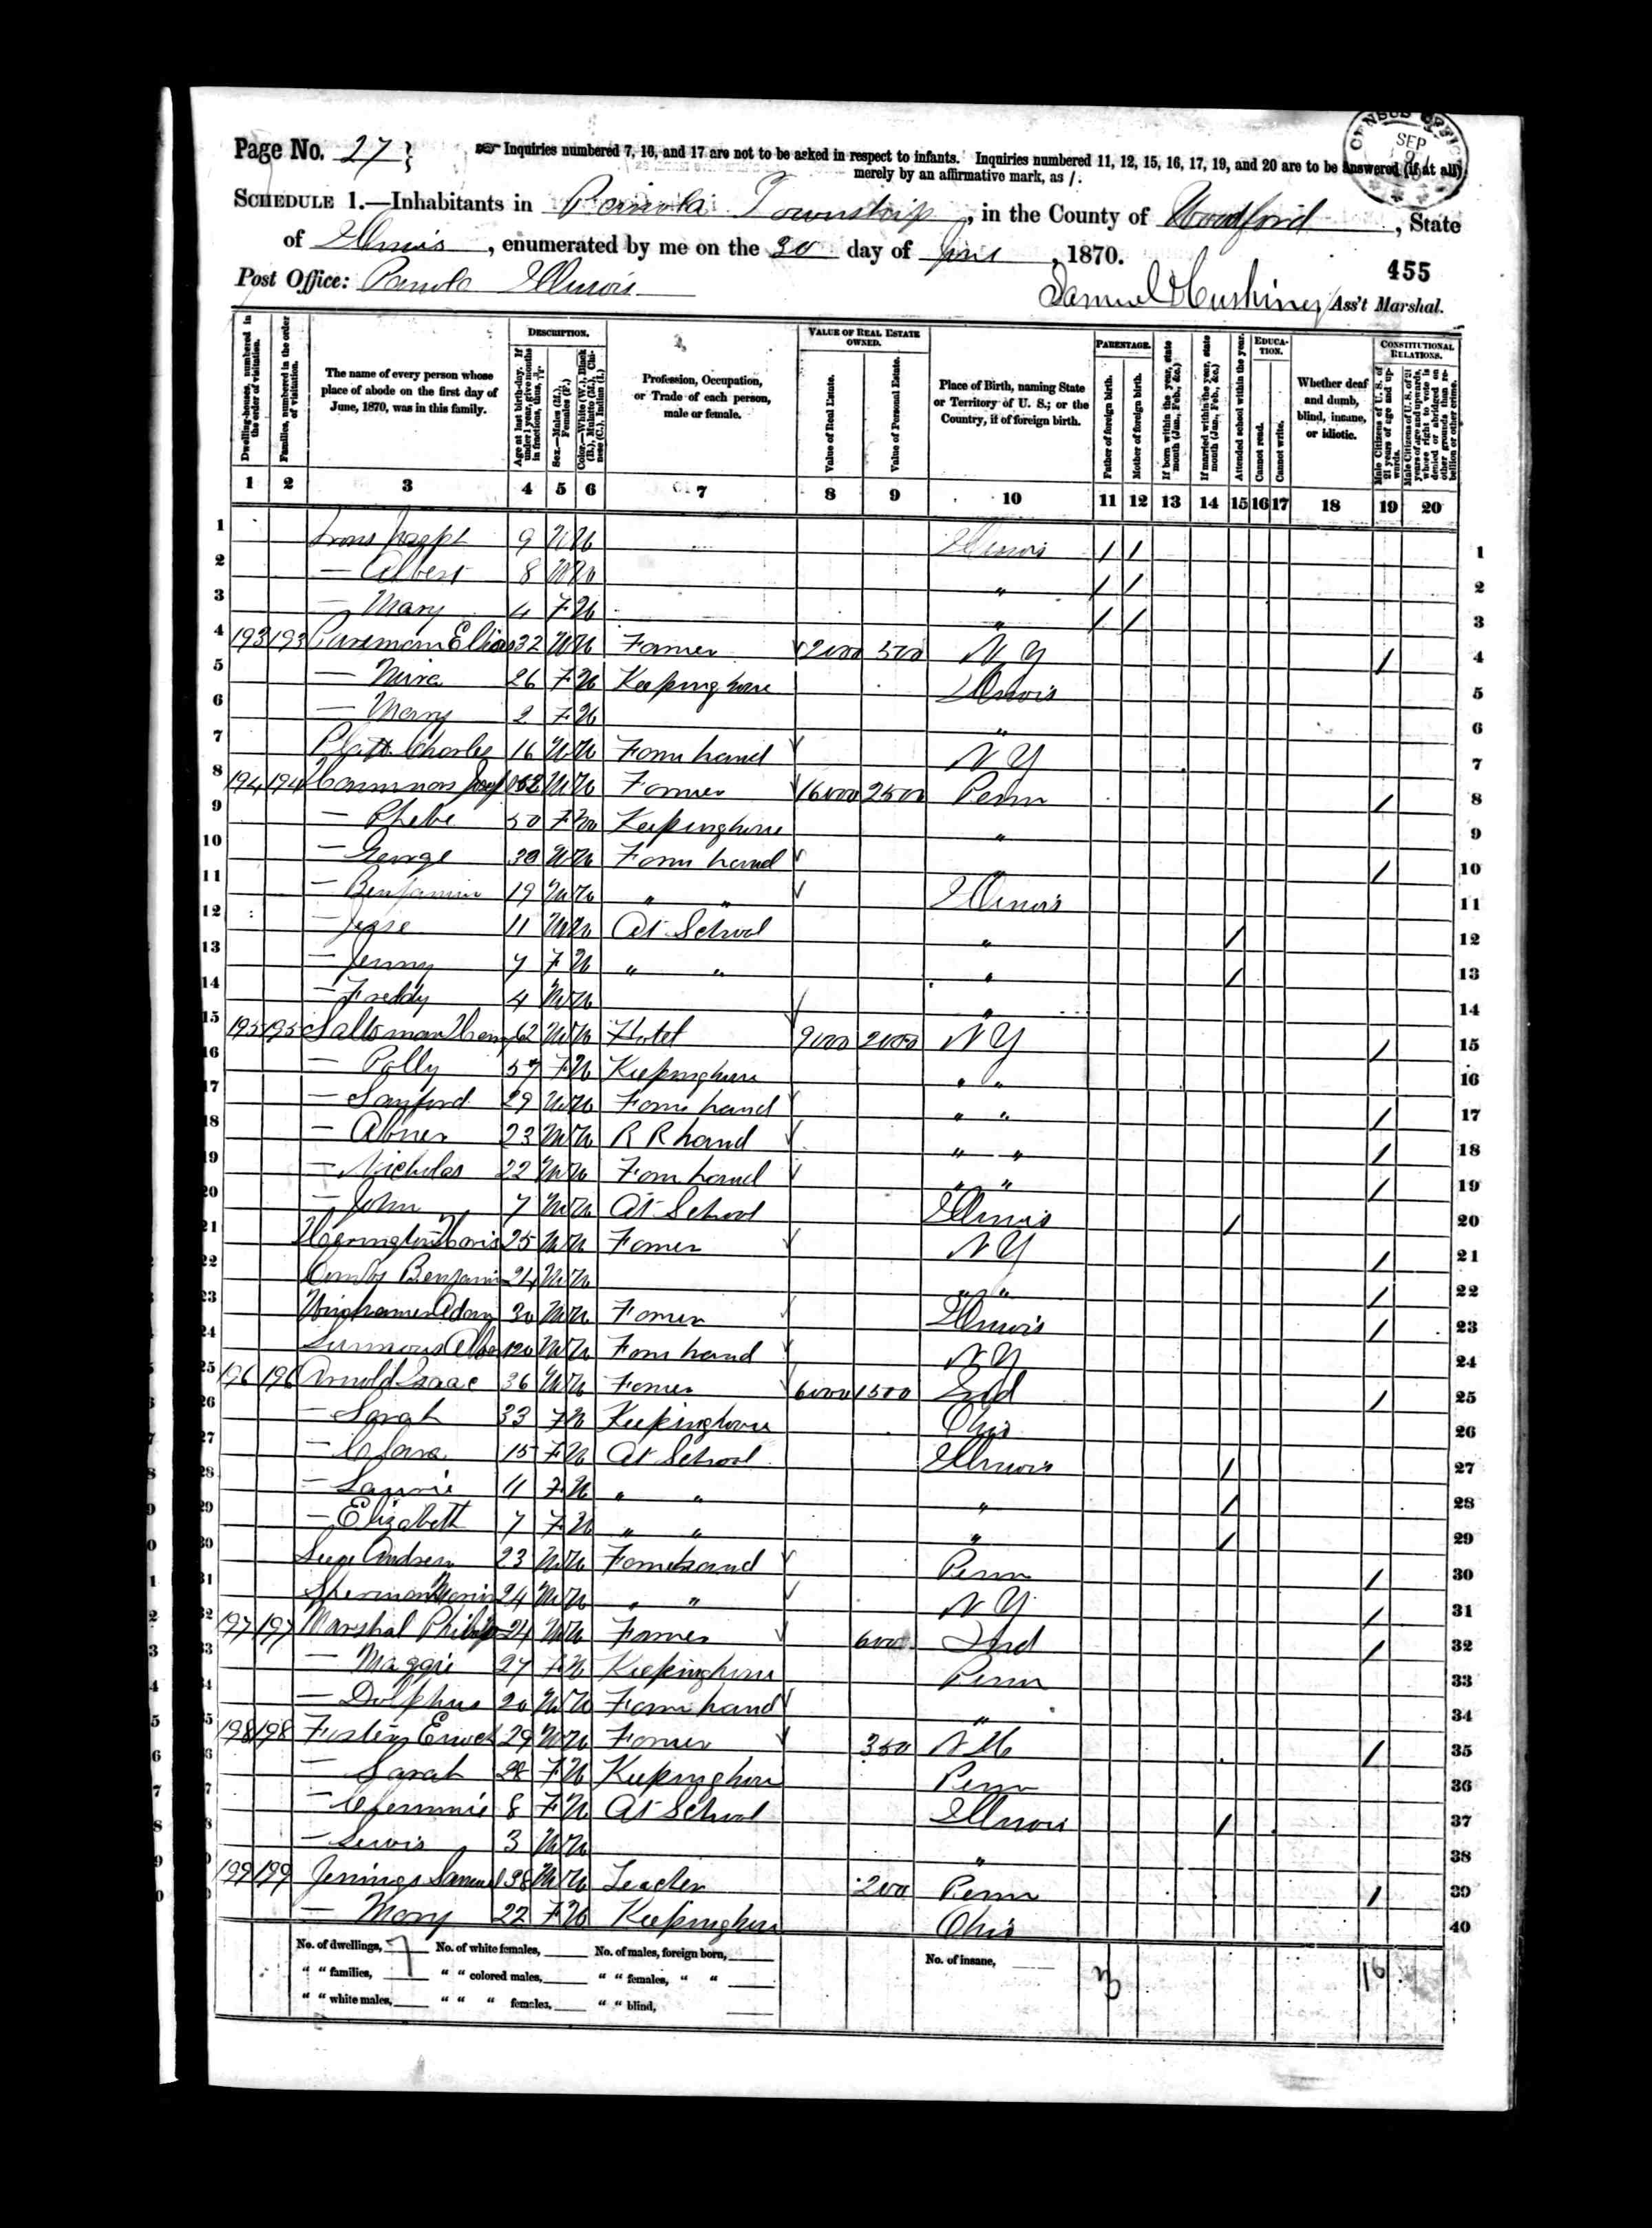 CENSUS OFFICE
SEP
Page No. 27
Inquiries numbered 7, 16, and 17 are not to be asked in respect to infants. Inquiries numbered 11, 12, 15, 16, 17, 19, and 20 are to be answered (if at all)
merely by an affirmative mark, as /.
SCHEDULE 1.—Inhabitants in Panola Township, in the County of Woodford, State
of Illinois, enumerated by me on the 30 day of June, 1870.
455
Post Office: Panola Illinois
Samuel Ass't Marshal.
Dwelling-houses, numbered in the order of visitation.
Families, numbered in the order of visitation.
The name of every person whose place of abode on the first day of June, 1870, was in this family.
DESCRIPTION.
Age at last birth-day. If under 1 year, give months in fractions, thus,
Sex.—Males (M.), Females (F.)
Color.—White (W.), Black (B.), Mulatto (M.), Chinese (C.), Indian (I.)
Profession, Occupation, or Trade of each person, male or female.
VALUE OF REAL ESTATE OWNED.
Value of Real Estate.
Value of Personal Estate.
Place of Birth, naming State or Territory of U. S.; or the Country, if of foreign birth.
PARENTAGE.
Father of foreign birth.
Mother of foreign birth.
If born within the year, state month (Jan., Feb., &c.)
If married within the year, state month (Jan., Feb., &c.)
Attended school within the year.
EDUCATION.
Cannot read.
Cannot write.
Whether deaf and dumb, blind, insane, or idiotic.
CONSTITUTIONAL RELATIONS.
Male Citizens of U. S. of 21 years of age and upwards.
Male Citizens of U. S. of 21 years of age and upwards, whose right to vote is denied or abridged on other grounds than rebellion or other crime.
1 2 3 4 5 6 7 8 9 10 11 12 13 14 15 16 17 18 19 20
1 Joseph 9 M W Illinois / / 1
2 — Albert 8 M W " / / 2
3 — Mary 4 F W " / / 3
4 193 193 Elias 32 M W Farmer 2000 500 N Y / 4
5 — 26 F W Keeping house Illinois 5
6 — Mary 2 F W " 6
7 Platt Charles 16 M W Farm hand N Y 7
8 194 194 62 M W Farmer 16000 2500 Penn / 8
9 — Phebe 50 F W Keeping house " 9
10 — George 30 M W Farm hand " / 10
11 — Benjamin 19 M W " " Illinois 11
12 — Jesse 11 M W At School " / 12
13 — Jenny 7 F W " " " / 13
14 — Freddy 4 M W " 14
15 195 195 Saltsman 62 M W Hotel 9000 2000 N Y / 15
16 — Polly 57 F W Keeping house " " 16
17 — Sanford 29 M W Farm hand " " / 17
18 — Abner 23 M W R R hand " " / 18
19 — Nicholas 22 M W Farm hand " " / 19
20 — John 7 M W At School Illinois / 20
21 Harrington 25 M W Farmer N Y / 21
22 Benjamin 24 M W " " / 22
23 Adam 30 M W Farmer Illinois / 23
24 20 M W Farm hand N Y 24
25 196 196 Arnold Isaac 36 M W Farmer 6000 1500 Ind / 25
26 — Sarah 33 F W Keeping house Ohio 26
27 — Clara 15 F W At School Illinois / 27
28 — 11 F W " " " / 28
29 — Elizabeth 7 F W " " " / 29
30 Andrew 23 M W Farm hand Penn / 30
31 Sherman 24 M W " " N Y / 31
32 197 197 Marshal Philip 24 M W Farmer 600 Ind / 32
33 — Maggie 27 F W Keeping house Penn 33
34 — Dolphus 20 M W Farm hand " 34
35 198 198 Enoch 29 M W Farmer 350 N H / 35
36 — Sarah 28 F W Keeping house Penn 36
37 — 8 F W At School Illinois / 37
38 — Lewis 3 M W " 38
39 199 199 Jennings Samuel 38 M W Teacher 200 Penn / 39
40 — Mary 22 F W Keeping house Ohio 40
No. of dwellings, 7 No. of white females, No. of males, foreign born, No. of insane, 3 16
" " families, " " colored males, " " females, " "
" " white males, " " " females, " " blind,